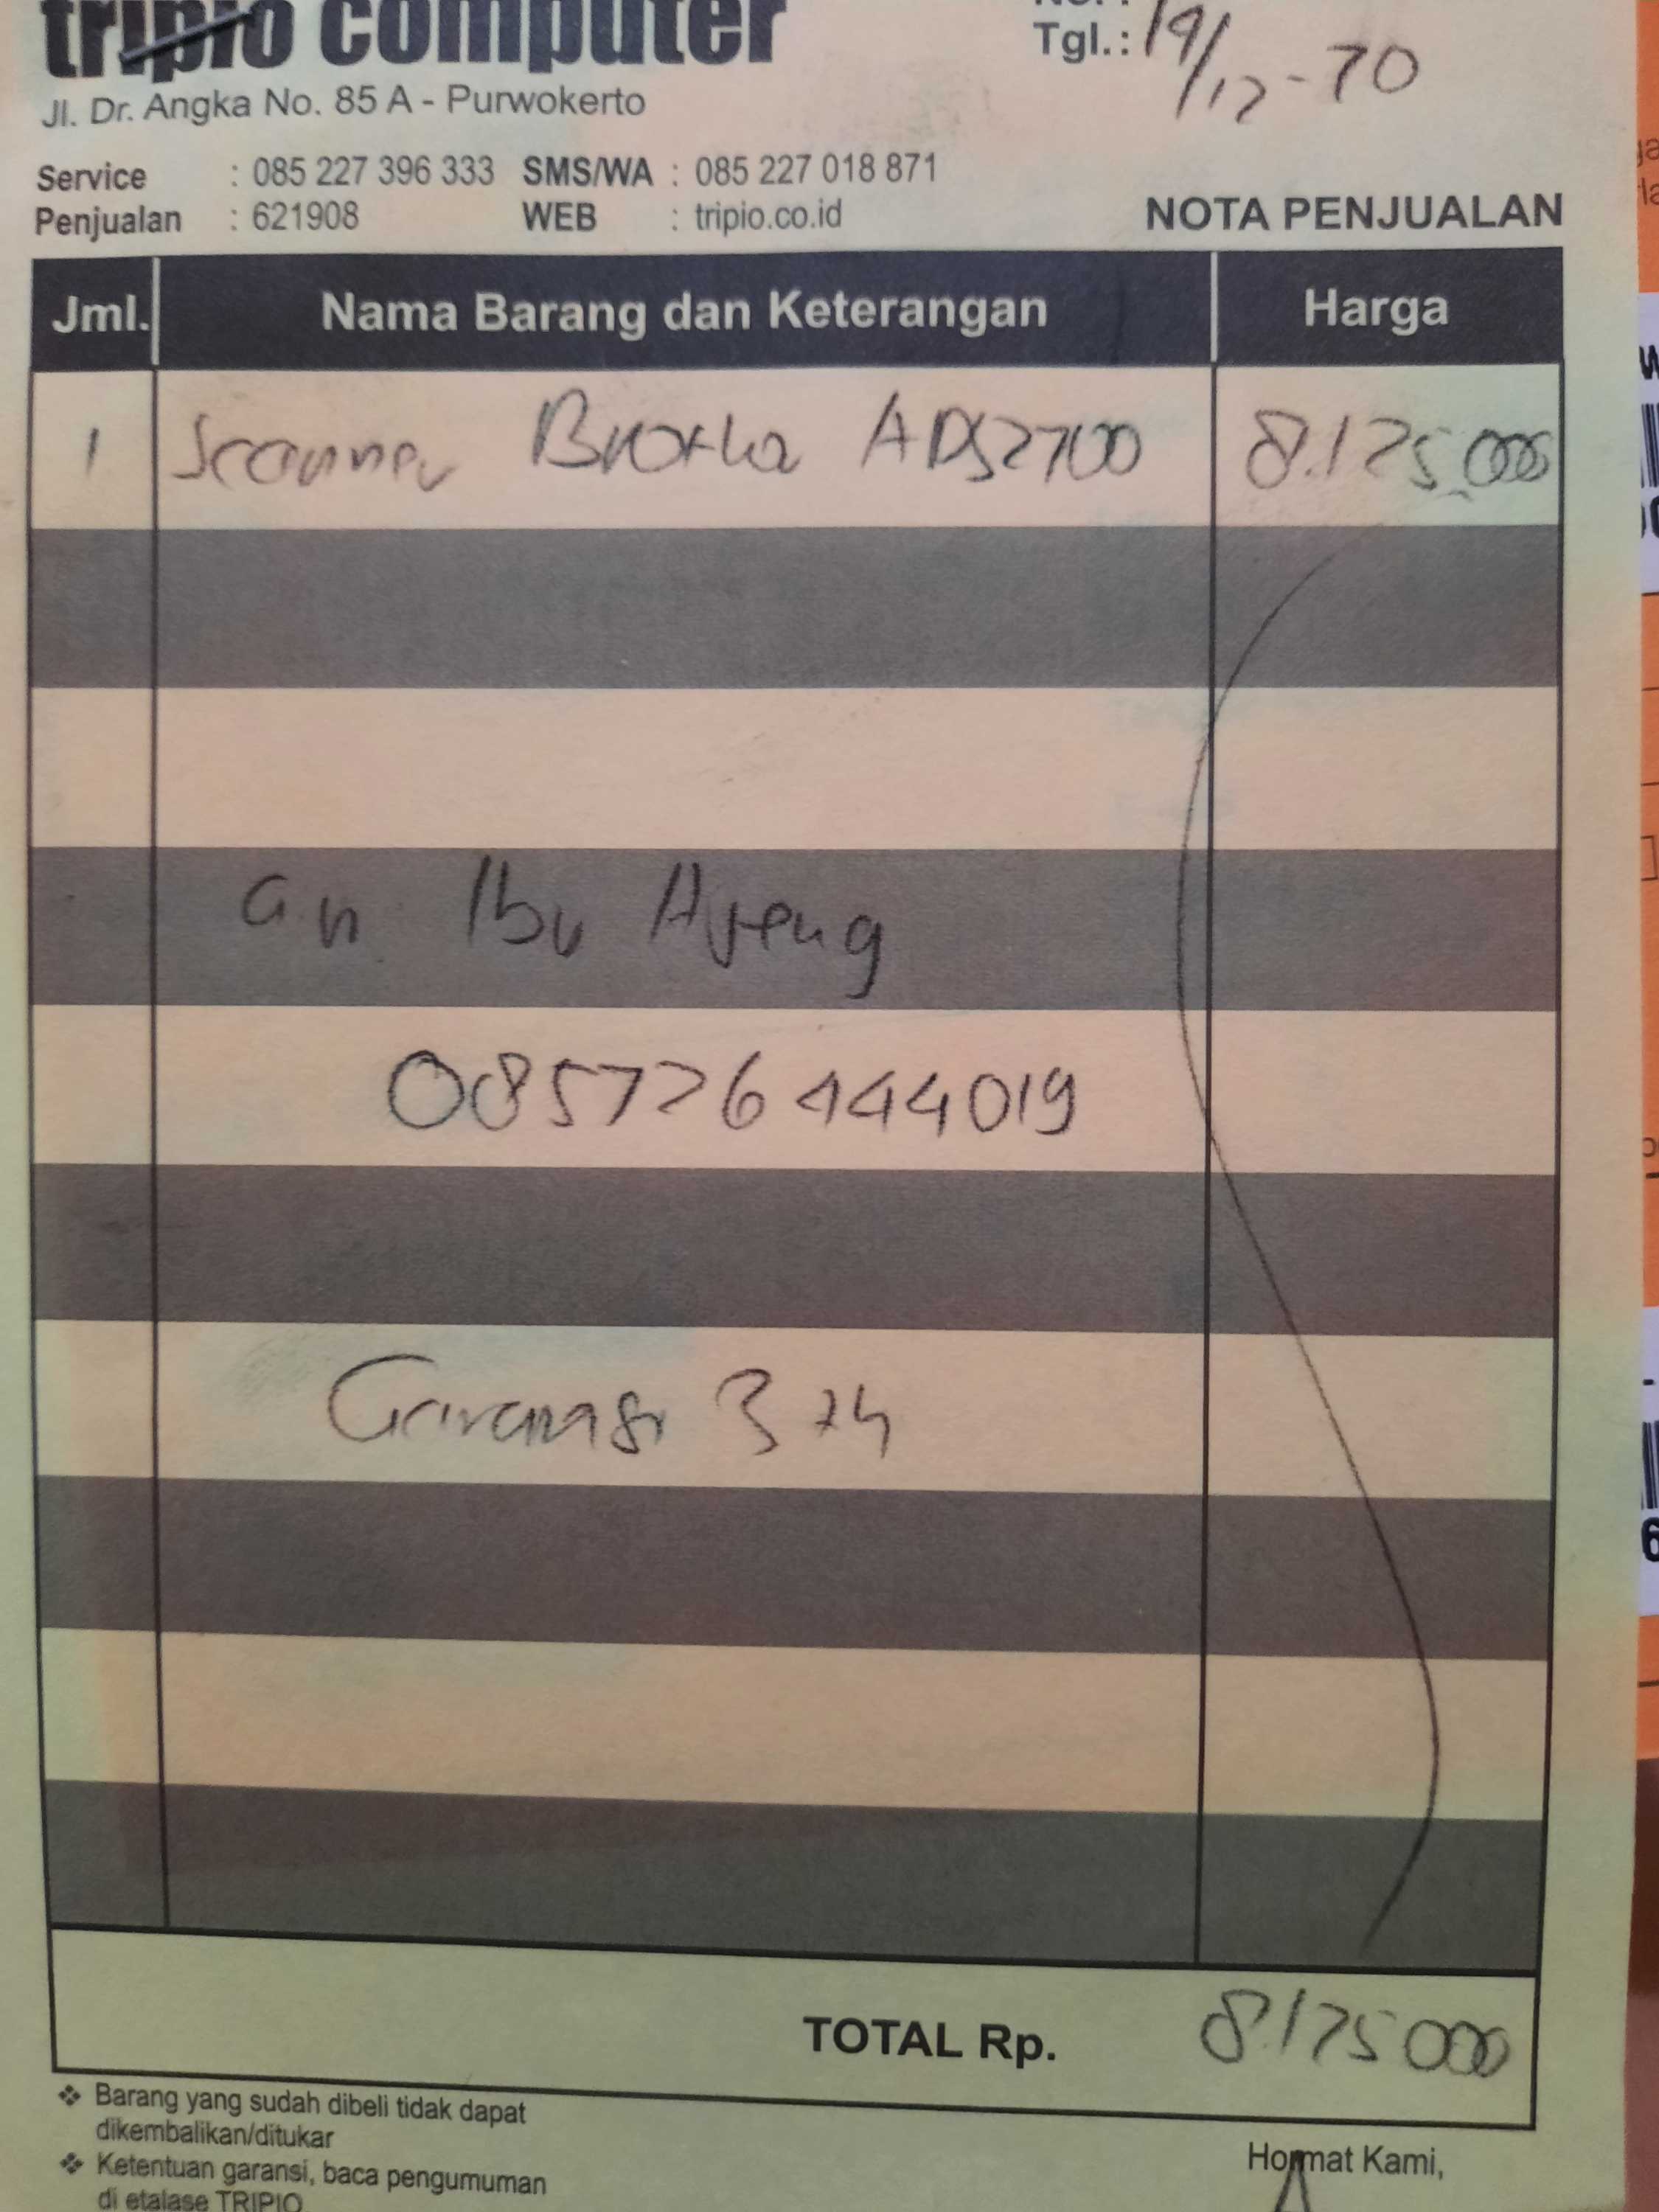 tripio computer
No. :
Tgl.: 19/12-20
Jl. Dr. Angka No. 85 A - Purwokerto
Service : 085 227 396 333 SMS/WA : 085 227 018 871
Penjualan : 621908 WEB : tripio.co.id
NOTA PENJUALAN
Jml. Nama Barang dan Keterangan Harga
1 Scanner Brother ADS2700 8.125.000
an Ibu Ajeng
085726444019
Garansi 3 th
TOTAL Rp. 8.125000
❖ Barang yang sudah dibeli tidak dapat
dikembalikan/ditukar
❖ Ketentuan garansi, baca pengumuman
di etalase TRIPIO
Hormat Kami,